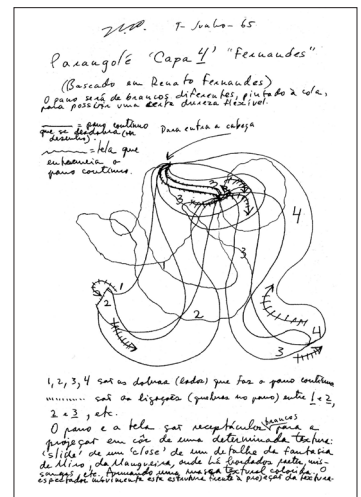 7-Junho-65
Parangolé 'Capa 4' "Fernandes"
(Bascado em Renato Fernandes)
O pano será de brancos diferentes, pintado à cola,
para possuir uma certa dureza flexível.
= pano contínuo
que se desdobra (em
desenho).
= tela que
entremeia o
pano contínuo.
Para entrar a cabeça
1
2
3
4
3
3
2
1
2
3
4
1, 2, 3, 4 são as dobras (lados) que faz o pano contínuo
são as ligações (quebras no pano) entre 1 e 2,
2 e 3, etc.
O pano e a tela são receptáculos brancos para a
projeção em côr de uma determinada textura:
'slide' de um 'close' de um detalhe da fantasia
de Miro, da Mangueira, onde há bordados, pretas, mis-
sangas, etc. formando uma massa textural colorida. O
espectador movimenta esta estrutura frente à projeção da textura.